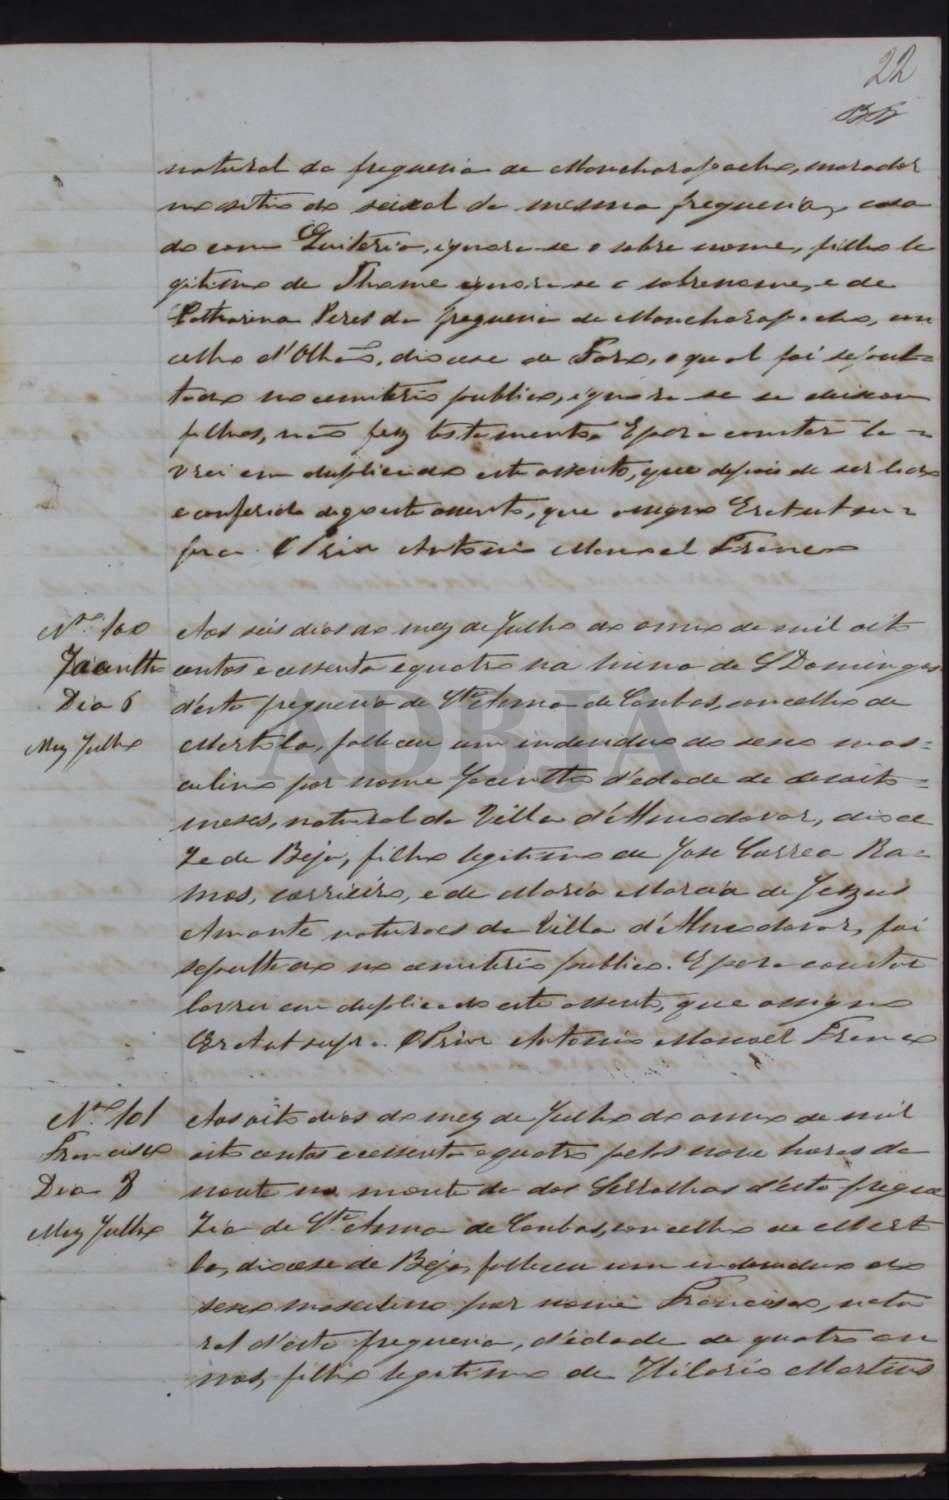 22
natural da freguesia de Moncharapacho, morador
no sitio do seixal da mesma freguesia, casa
do com Quiteria, ignora-se o sobre nome, filho le
gitimo de Thome ignora-se o sobrenome, e de
Catharina Peres da freguesia de Moncharapacho, con
celho d'Olhão, diocese de Faro, o qual foi sepul=
tado no cemiterio publico, ignora-se se deixou
filhos, não fez testamento. E para constar la=
vrei em duplicado este assento, que depois de ser lido
e conferido assento, que assigno Era ut su=
pra. O Prior Antonio Manoel Franco
Nº 100
Jacintho
Dia 6
Mez Julho
Aos seis dias do mez de Julho do anno de mil oito
centos e cessenta e quatro na de S Domingos
d'esta freguesia de Stª Anna de Cambas, concelho de
Mertola, falleceu um individuo do sexo mas=
culino por nome Jacintho d'edade de desoito=
meses, natural da Villa d'Almodovar, dioce
ze de Beja, filho legitimo de Jose Correa Ra=
mos, e de Maria Marcia de Jezus
Amante naturaes da Villa d'Almodovar, foi
sepultado no cemiterio publico. E para constar
lavrei em duplicado este assento, que assigno
Era ut supra. O Prior Antonio Manoel Franco
Nº 101
Francisco
Dia 8
Mez Julho
Aos oito dias do mez de Julho do anno de mil
oito centos e cessenta e quatro pelas nove horas da
noute no monte da dos Serralhas d'esta fregue
zia de Stª Anna de Cambas, concelho de Mert
la, diocese de Beja, falleceu um individuo do
sexo masculino por nome Francisco, natu
ral d'esta freguesia, d'edade de quatro an
nos, filho legitimo de Hilario Martins
ADBJA